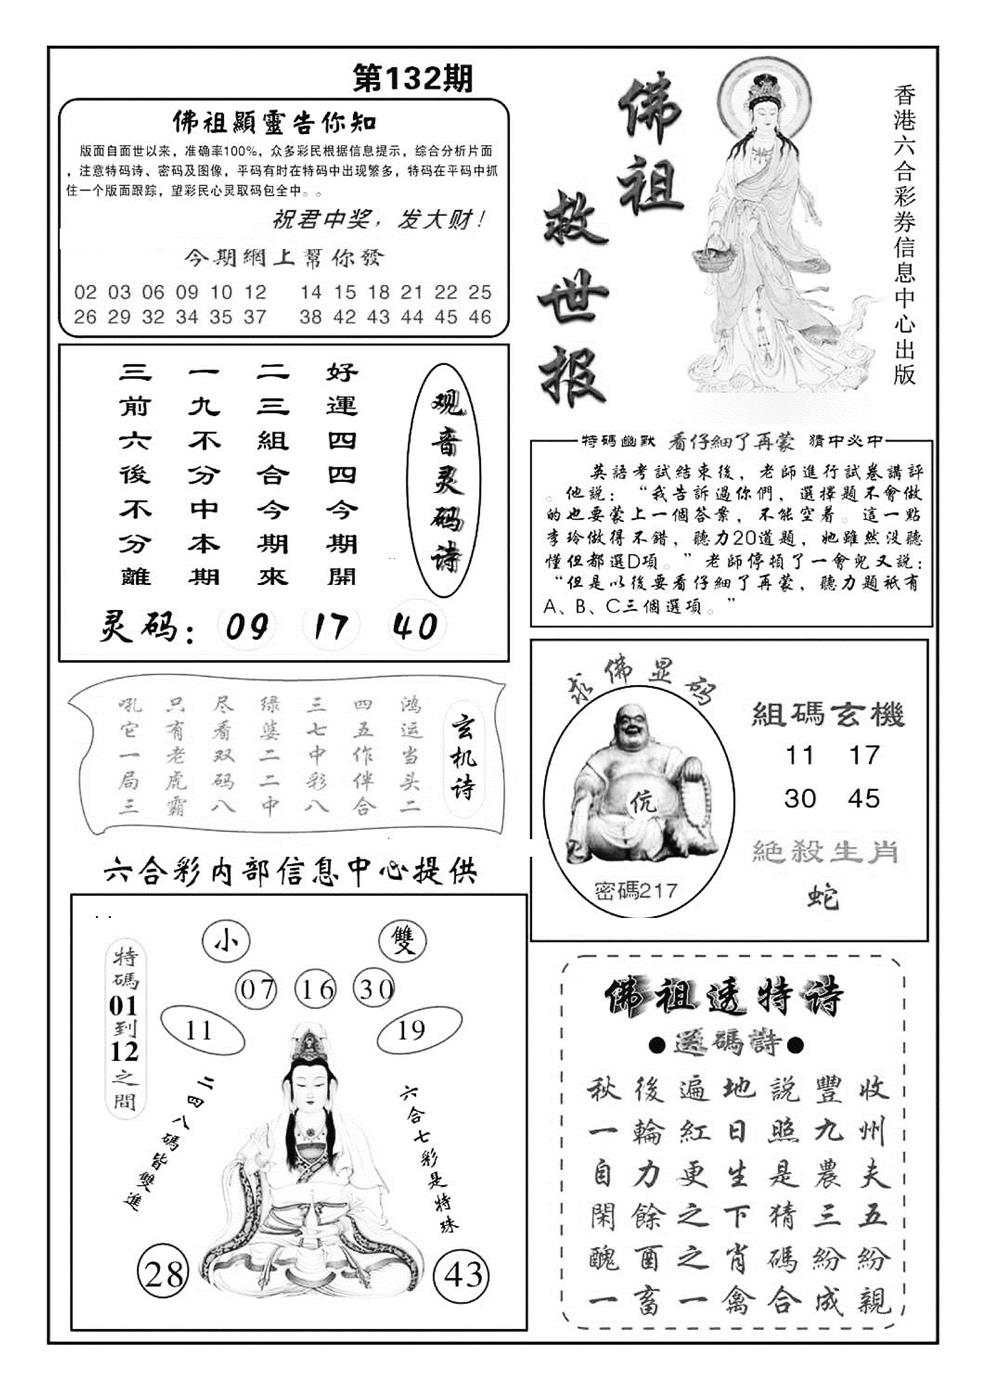 第132期
佛祖顯靈告你知
版面自面世以来，准确率100%，众多彩民根据信息提示，综合分析片面
，注意特码诗、密码及图像，平码有时在特码中出现繁多，特码在平码中抓
住一个版面跟踪，望彩民心灵取码包全中。。
祝君中奖，发大财！
今期網上幫你發
02 03 06 09 10 12 14 15 18 21 22 25
26 29 32 34 35 37 38 42 43 44 45 46
佛祖
救世报
香港六合彩券信息中心出版
三一二好
前九三運
六不組四
後分合四
不中今今
分本期期
離期來開
观音灵码诗
灵码：09 17 40
特碼幽默 看仔細了再蒙 猜中必中
英語考試結束後，老師進行試卷講評
。他説：“我告訴過你們，選擇題不會做
的也要蒙上一個答案，不能空着。這一點
李玲做得不錯，聽力20道題，她雖然没聽
懂但都選D項。”老師停頓了一會兒又説：
“但是以後要看仔細了再蒙，聽力題衹有
A、B、C三個選項。”
吼只尽绿三四鸿
它有看婆七五运
一老双二中作当
局虎码二彩伴头
三霸八中八合二
玄机诗
求佛显码
伉
密碼217
組碼玄機
11 17
30 45
絕殺生肖
蛇
六合彩内部信息中心提供
小 雙
07 16 30
11 19
特碼01到12之間
二四八碼皆雙進
六合七彩是特珠
28 43
佛祖透特诗
●送碼詩●
秋後遍地説豐收
一輪紅日照九州
自力更生是農夫
閑餘之下猜三五
醜酉之肖碼紛紛
一畜一禽合成親